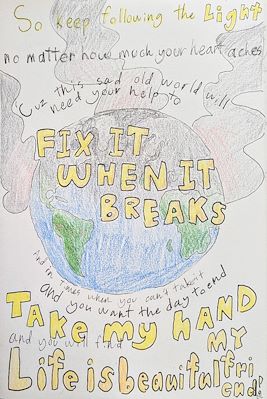 So keep following the Light
no matter how much your heart aches
'Cuz this sad old world will
need your help to
FIX IT
WHEN IT
BREAKS
And in times when you can't take it
and you want the day to end
TAKE my HAND
and you will find
MY
Life is beautiful friend!